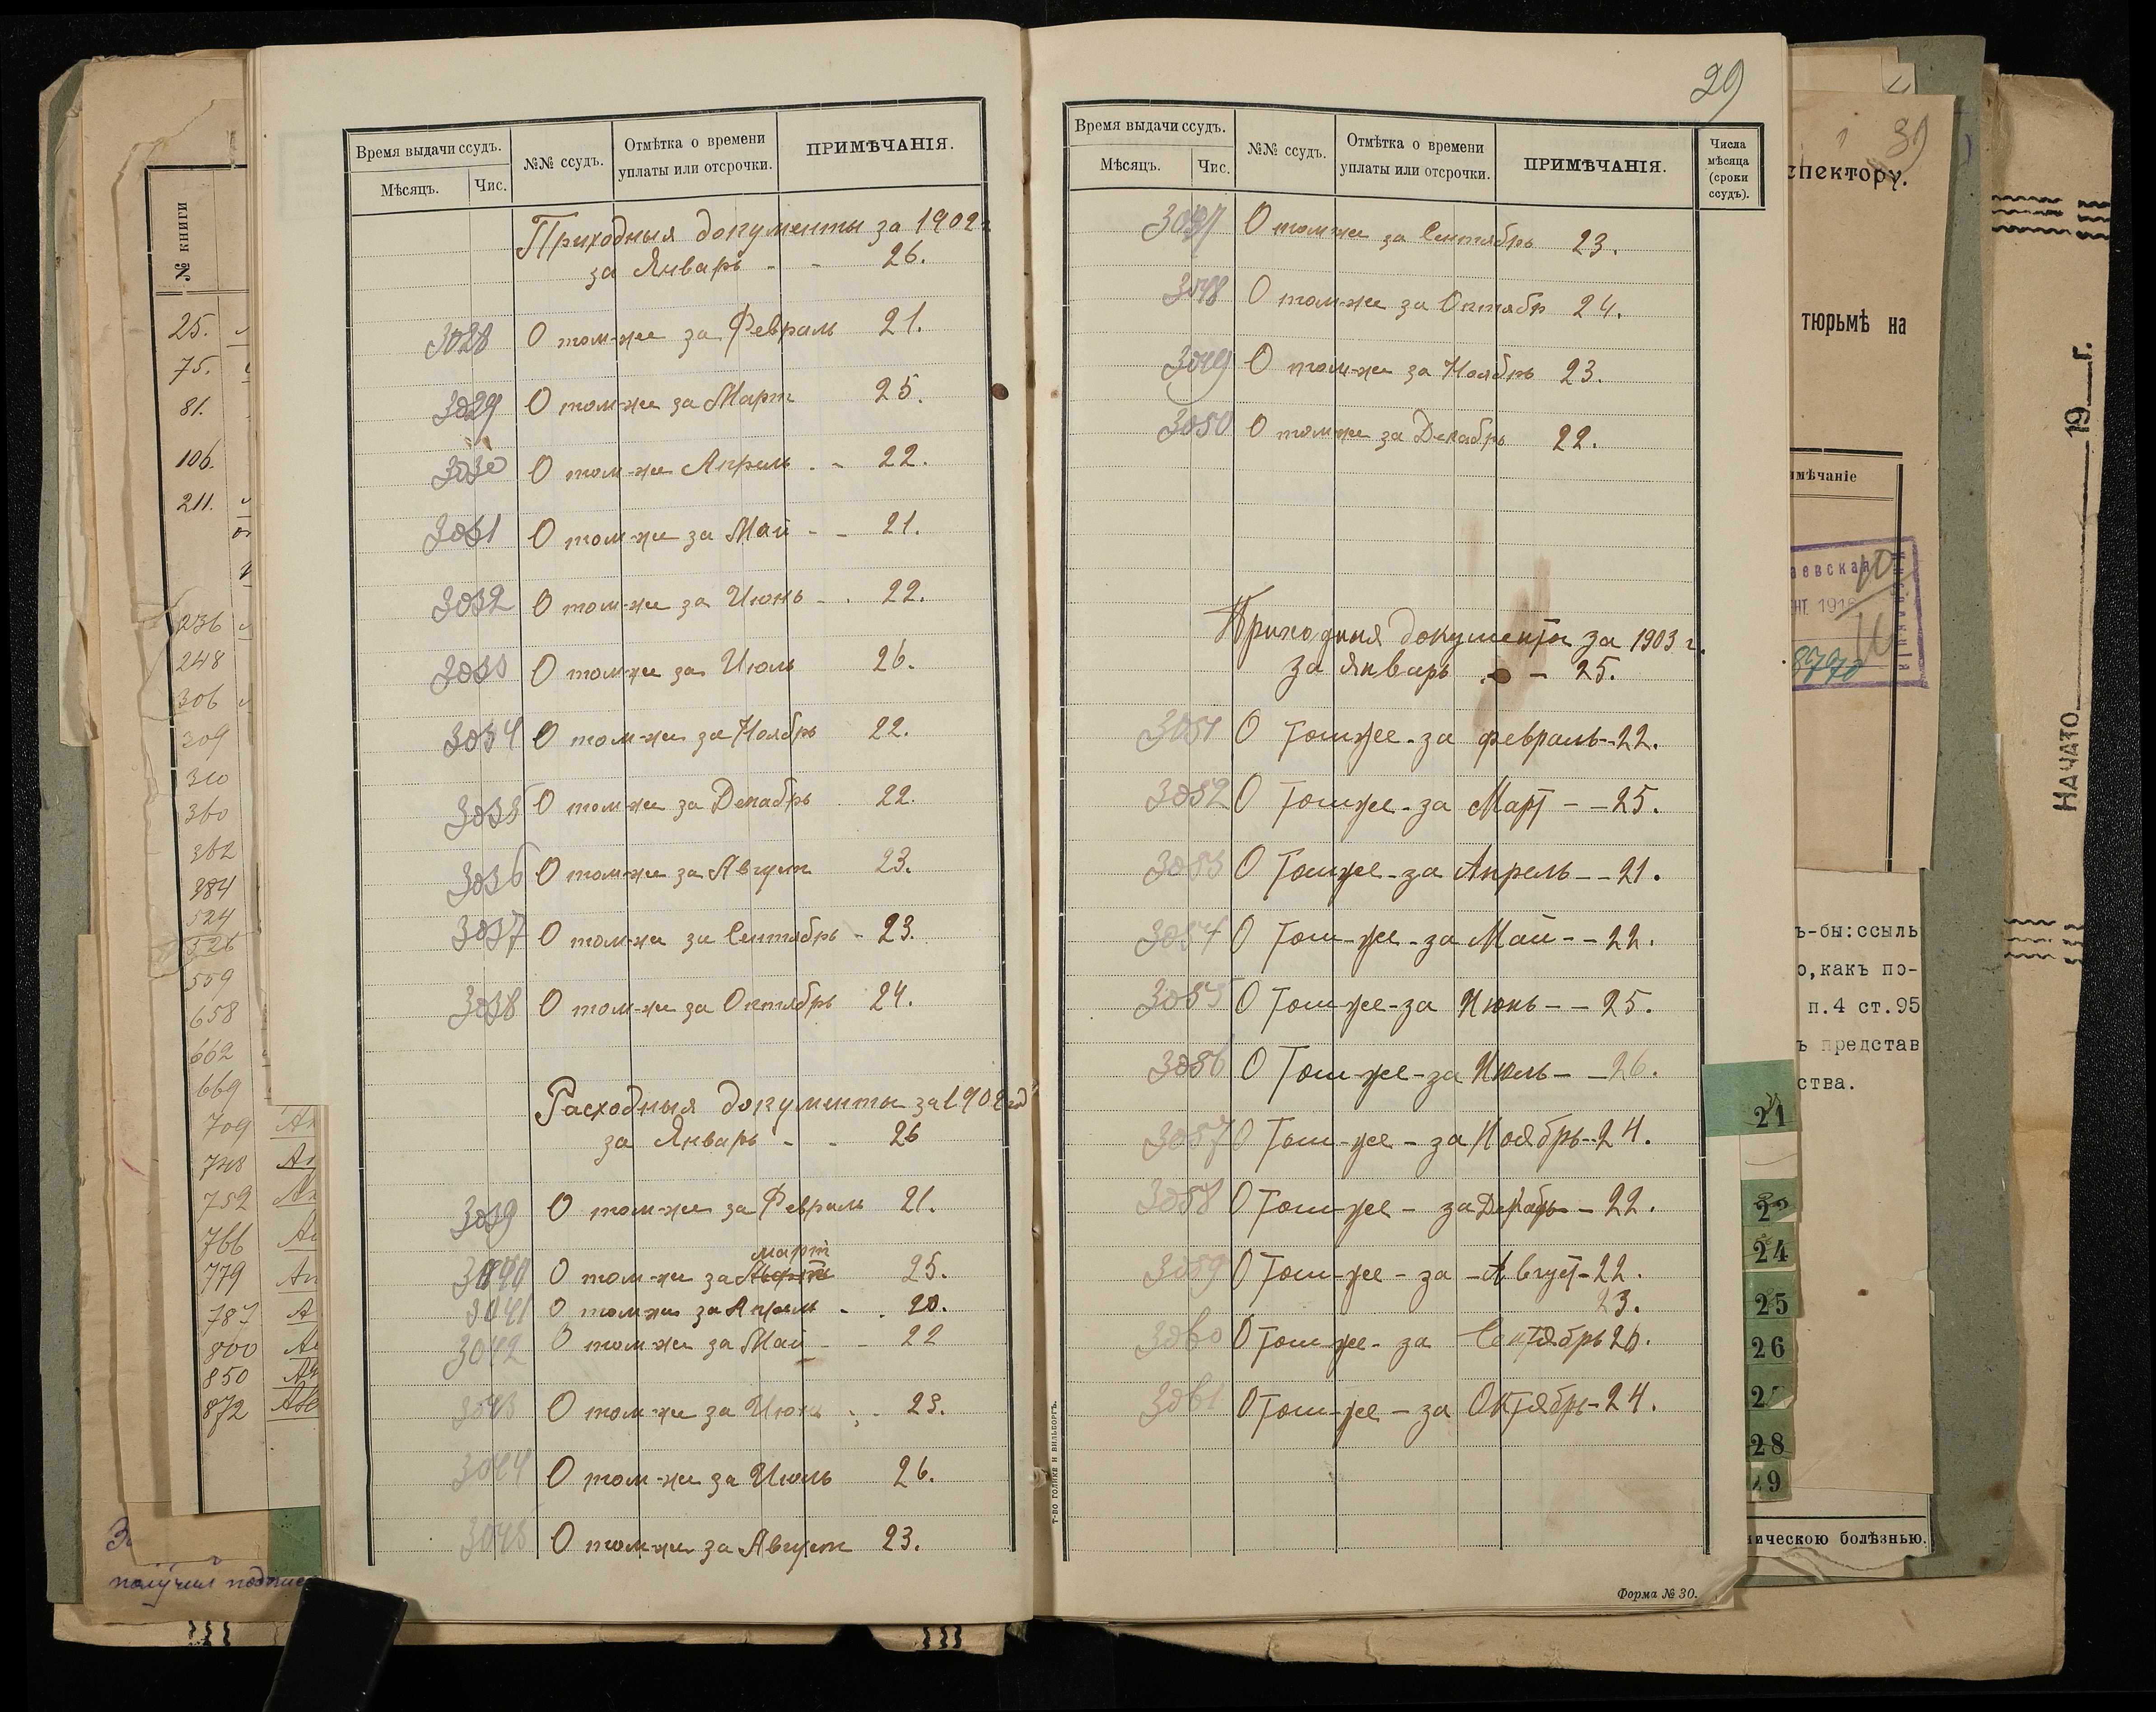 29
Время выдачи ссудъ.
Мѣсяцъ.
Чис.
№№ ссудъ.
Отмѣтка о времени
уплаты или отсрочки.
ПРИМѢЧАНІЯ.
Приходныя документы за 1902 г
за Январь - - 26.
3028 О том-же за Февраль 21.
3029 О том-же за Март 25.
3030 О том-же Апрель . - 22.
3031 О том-же за Май - - 21.
3032 О том-же за Июнь - . 22.
3033 О том-же за Июль 26.
3034 О том-же за Ноябрь 22.
3035 О том-же за Декабрь 22.
3036 О том-же за Август 23.
3037 О том-же за Сентябрь - 23.
3038 О том-же за Октябрь 24.
Расходныя документы за 1902 год
за Январь - - 26
3039 О том-же за Февраль 21.
март
3040 О том-же за 25.
3041 О том-же за Апрель - . 20.
3042 О том-же за Май - - 22
3043 О том-же за Июнь . - 23.
3044 О том-же за Июль 26.
3045 О том-же за Август 23.
Время выдачи ссудъ.
Мѣсяцъ.
Чис.
№№ ссудъ.
Отмѣтка о времени
уплаты или отсрочки.
ПРИМѢЧАНІЯ.
Числа
мѣсяца
(сроки
ссудъ).
3047 О том-же за Сентябрь 23.
3048 О том-же за Октябр 24.
3049 О том-же за Ноябрь 23.
3050 О том-же за Декабрь 22.
Приходныя документы за 1903 г.
за январь - - 25.
3051 О том же - за февраль - - 22.
3052 О том же - за Март - - 25.
3053 О том же - за Апрель - - 21.
3054 О том-же - за Май - - 22.
3055 О том-же - за Июнь - - 25.
3056 О том-же - за Июль - - 26.
3057 О том-же - за Ноябрь - - 24.
3058 О том-же - за Декабрь - 22.
3059 О том-же - за - Август - 22.
23.
3060 О том-же - за Сентябрь 26.
3061 О том-же - за Октябрь - 24.
Т-во Голике и Вильборгъ.
Форма № 30.
№ книги
25.
75.
81.
106.
211.
236
248
306
309
310
360
362
384
524
526
559
658
662
669
709
748
752
766
779
787
800
850
872
получил
спектору.
тюрьмѣ на
имѣчаніе
аевская
8770
ъ-бы:ссыль
о,какъ по-
п.4 ст.95
ъ представ
ства.
21
24
25
26
28
29
ническою болѣзнью.
НАЧАТО 19 г.